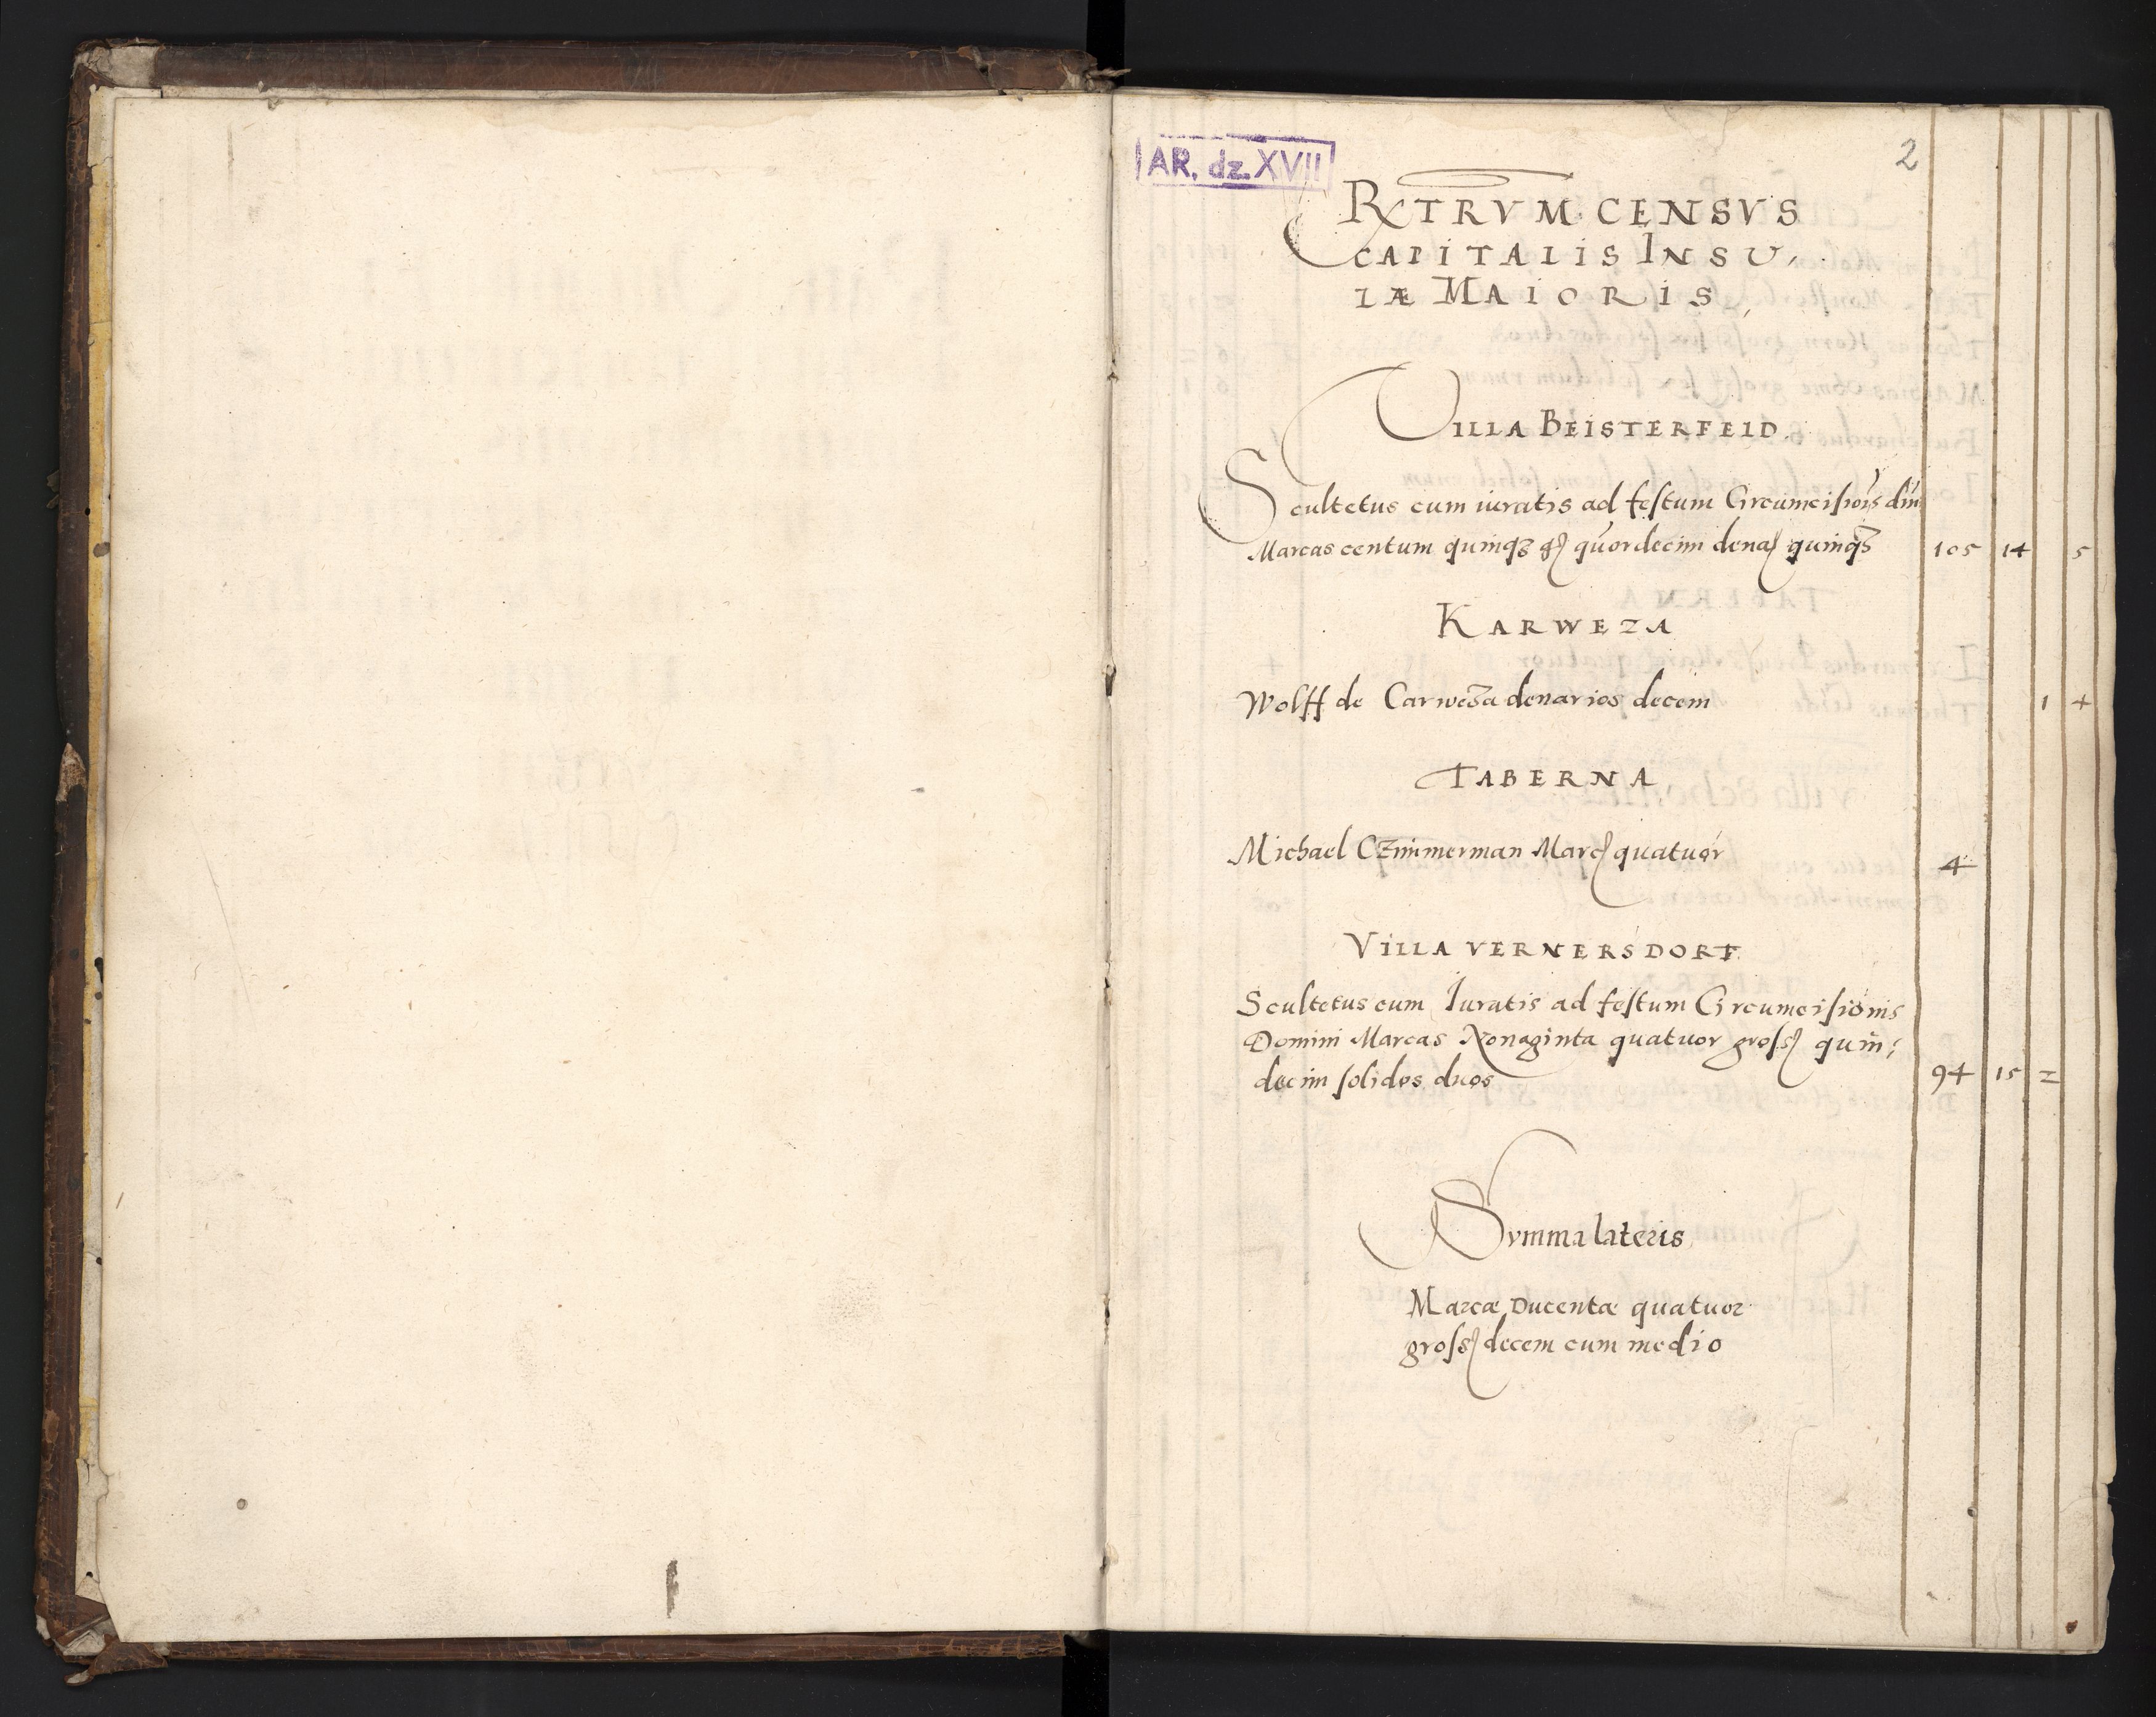 AR. dz. XVII
2
RXTRVM CENSVS
CAPITALIS INSU,
LÆ MAIORIS,
VILLA BEISTERFELD.
Scultetus cum iuratis ad festum Circumcisiois dni
Marcas centum quinqꝫ quordecim denaꝭ quinqꝫ 105 14 5
KARWEZA
Wolff de Carweza denarios decem 1 4
TABERNA
Michael Czimmerman Marcꝭ quatuor 4
VILLA VERNERSDORF
Scultetus cum Iuratis ad festum Circumcisionis
Domini Marcas Nonaginta quatuor grossꝭ quin;
decim solidos duos 94 15 2
Svmma lateris
Marcæ Ducentæ quatuor
grossꝭ decem cum medio